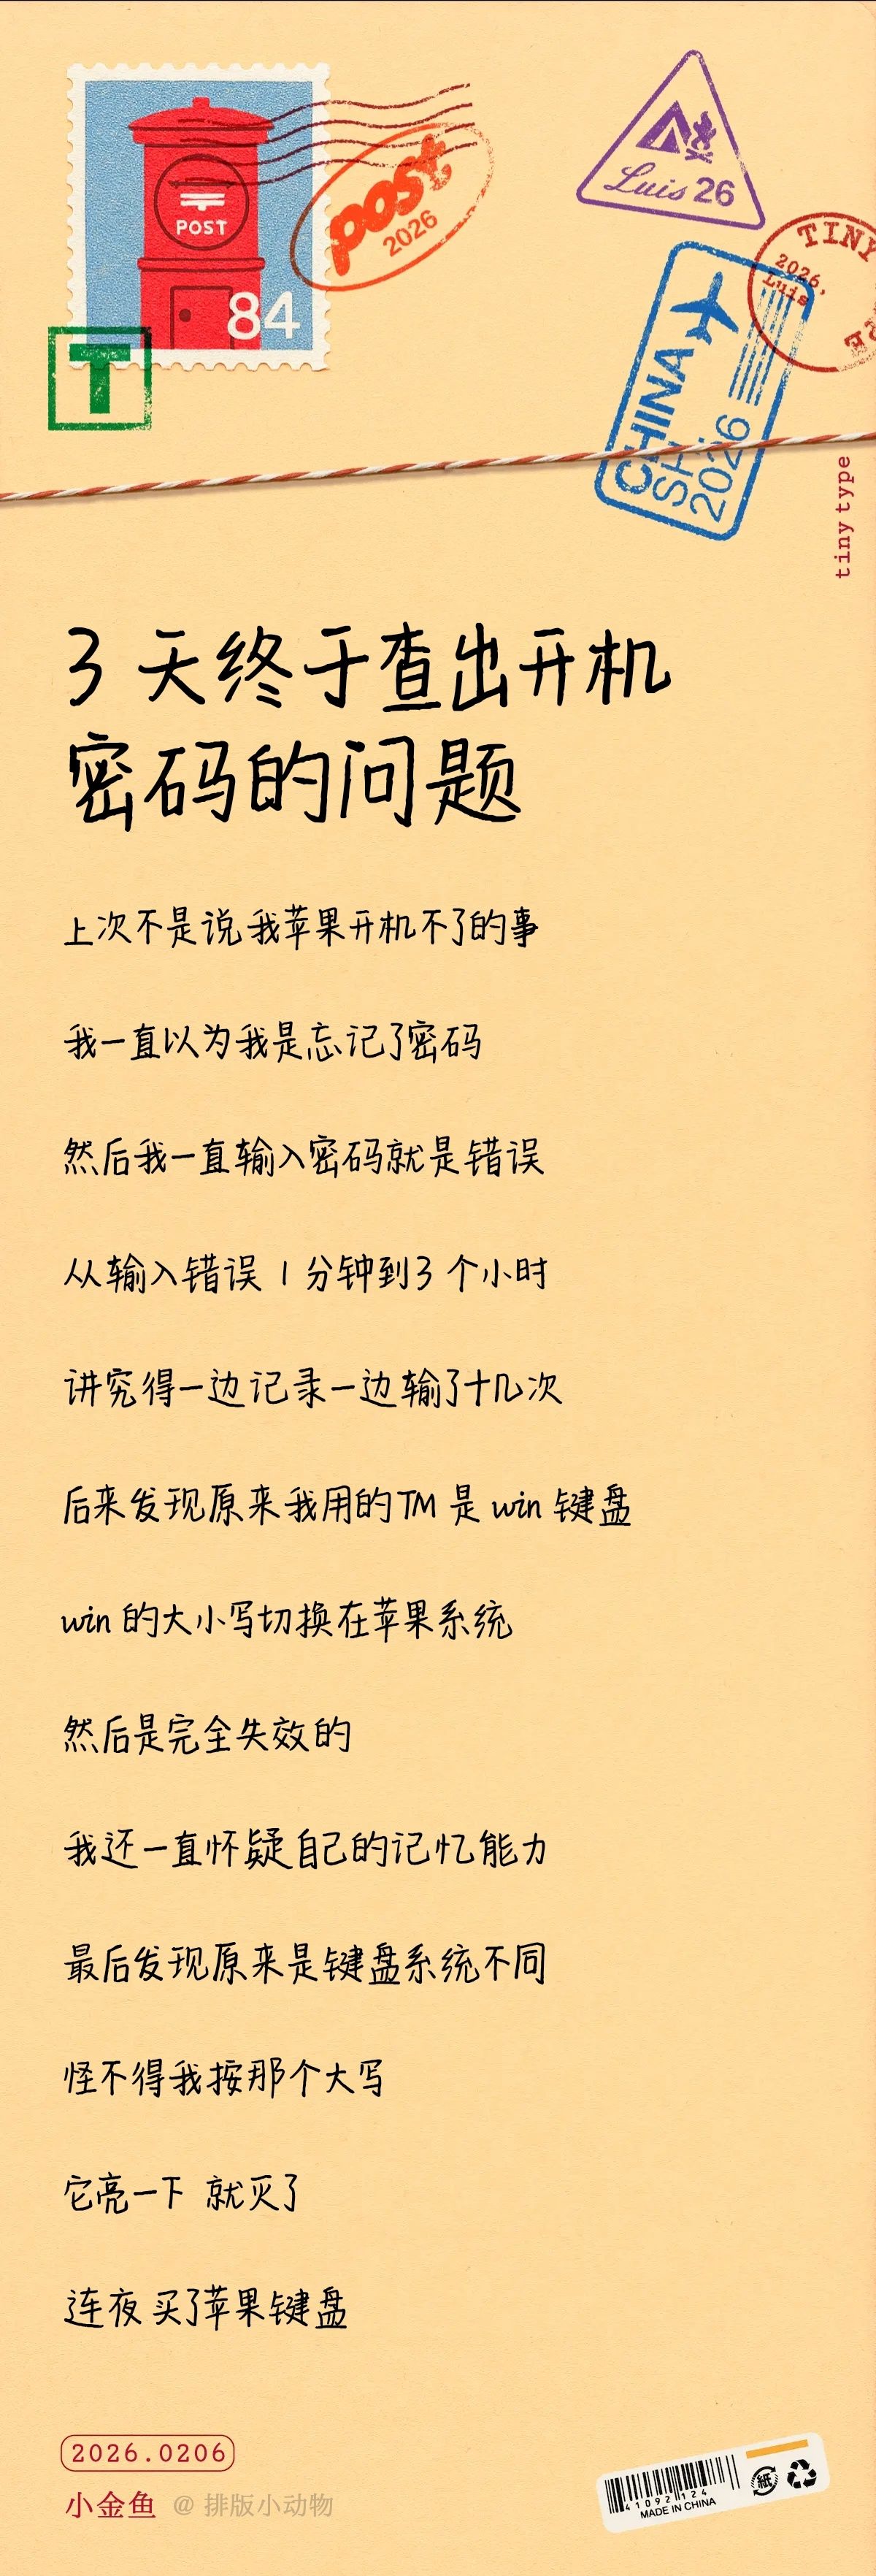 POST
84
post
2026
T
Luis 26
TINY
2026,
Luis
CHINA
SH
2026
tiny type
3 天终于查出开机
密码的问题
上次不是说我苹果开机不了的事
我一直以为我是忘记了密码
然后我一直输入密码就是错误
从输入错误 1 分钟到3 个小时
讲究得一边记录一边输了十几次
后来发现原来我用的TM 是 win 键盘
win 的大小写切换在苹果系统
然后是完全失效的
我还一直怀疑自己的记忆能力
最后发现原来是键盘系统不同
怪不得我按那个大写
它亮一下 就灭了
连夜买了苹果键盘
2026.0206
小金鱼 @ 排版小动物
41092124
MADE IN CHINA
紙